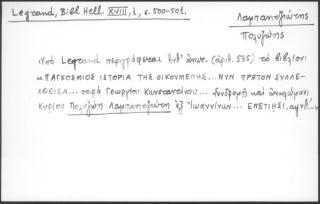 Legrand, Bibl. Hell. XVIII, 1, σ. 500-501.
Λαμπανιτζιώτης
Πολυζώης
Ὑπὸ Legrand περιγράφεται ὑπ' ἀριθ. (ἀριθ. 535) τὸ βιβλίον:
« ΠΑΓΚΟΣΜΙΟΣ ΙΣΤΟΡΙΑ ΤΗΣ ΟΙΚΟΥΜΕΝΗΣ... ΝΥΝ ΠΡΩΤΟΝ ΣΥΛΛΕ-
ΧΘΕΙΣΑ... παρὰ Γεωργίου Κωνσταντίνου... Συνδρομῇ καὶ ἀναλώμασι
Κυρίου Πολυζώη Λαμπανιτζιώτη ἐξ Ἰωαννίνων... ΕΝΕΤΙΗΣΙ,